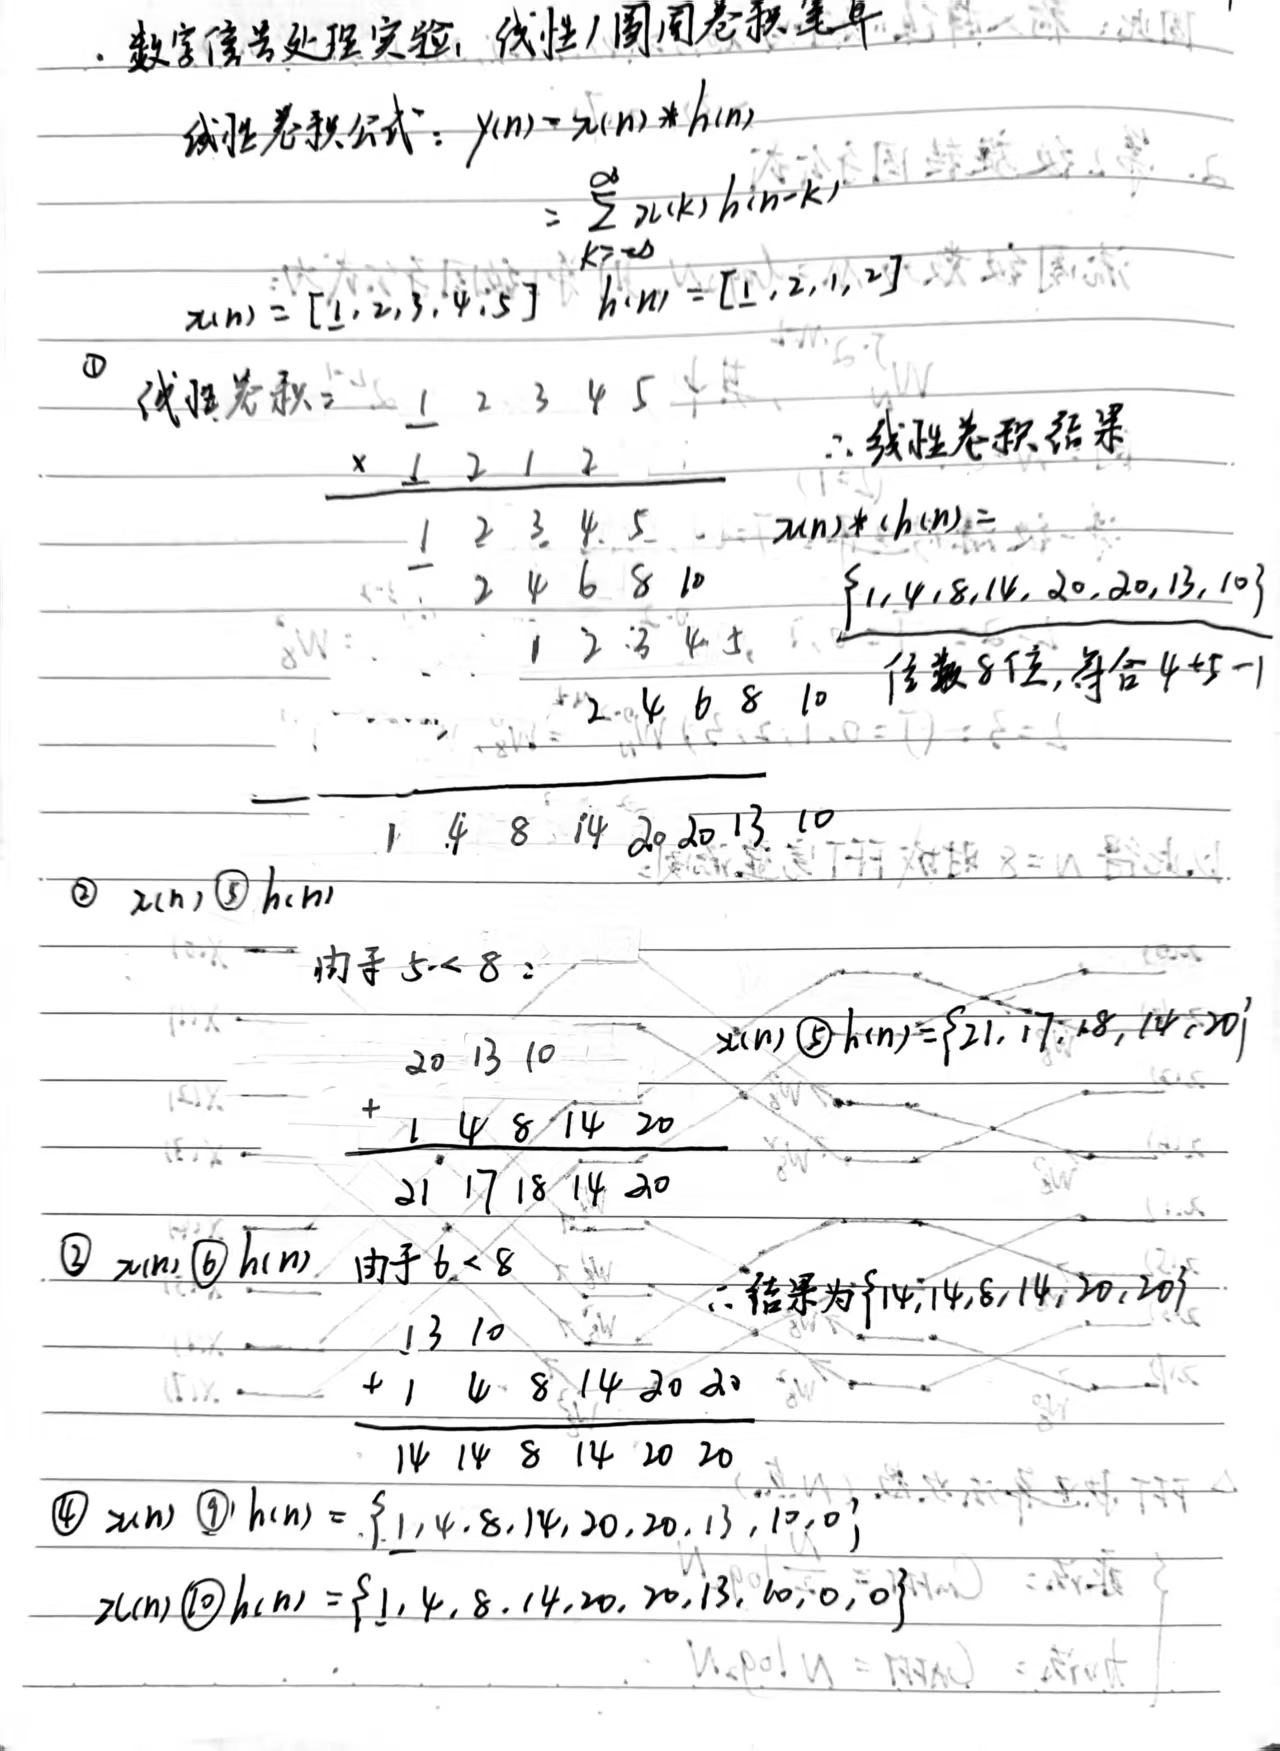 · 数字信号处理实验, 线性/圆周卷积笔算
线性卷积公式: y(n) = x(n) * h(n)
= ∑ x(k) h(n-k)
∞
k=-∞
x(n) = [1, 2, 3, 4, 5] h(n) = [1, 2, 1, 2]
① 线性卷积: 1 2 3 4 5
× 1 2 1 2
1 2 3 4 5
2 4 6 8 10
1 2 3 4 5
2 4 6 8 10
1 4 8 14 20 20 13 10
∴ 线性卷积结果
x(n) * h(n) =
{1, 4, 8, 14, 20, 20, 13, 10}
位数8位, 符合 4+5-1
② x(n) ⑤ h(n)
由于 5 < 8:
20 13 10
+ 1 4 8 14 20
21 17 18 14 20
x(n) ⑤ h(n) = {21, 17, 18, 14, 20}
③ x(n) ⑥ h(n) 由于 6 < 8
13 10
+ 1 4 8 14 20 20
14 14 8 14 20 20
∴ 结果为 {14, 14, 8, 14, 20, 20}
④ x(n) ⑨ h(n) = {1, 4, 8, 14, 20, 20, 13, 10, 0}
x(n) ⑩ h(n) = {1, 4, 8, 14, 20, 20, 13, 10, 0, 0}